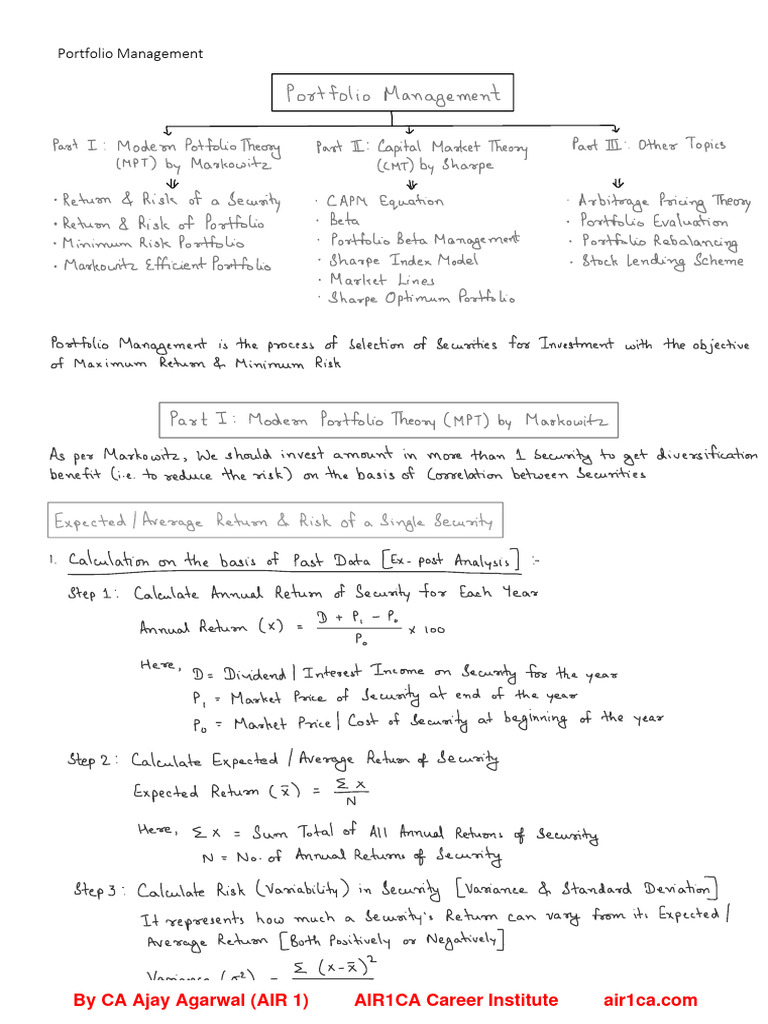 Portfolio Management
Portfolio Management
Part I: Modern Potfolio Theory
(MPT) by Markowitz
• Return & Risk of a Security
• Return & Risk of Portfolio
• Minimum Risk Portfolio
• Markowitz Efficient Portfolio
Part II: Capital Market Theory
(CMT) by Sharpe
• CAPM Equation
• Beta
• Portfolio Beta Management
• Sharpe Index Model
• Market Lines
• Sharpe Optimum Portfolio
Part III: Other Topics
• Arbitrage Pricing Theory
• Portfolio Evaluation
• Portfolio Rebalancing
• Stock Lending Scheme
Portfolio Management is the process of Selection of Securities for Investment with the objective
of Maximum Return & Minimum Risk
Part I: Modern Portfolio Theory (MPT) by Markowitz
As per Markowitz, We should invest amount in more than 1 Security to get diversification
benefit (i.e. to reduce the risk) on the basis of Correlation between Securities
Expected / Average Return & Risk of a Single Security
1. Calculation on the basis of Past Data [Ex-post Analysis] :-
Step 1: Calculate Annual Return of Security for Each Year
Annual Return (x) = (D + P₁ - P₀) / P₀ × 100
Here, D = Dividend | Interest Income on Security for the year
P₁ = Market Price of Security at end of the year
P₀ = Market Price | Cost of Security at beginning of the year
Step 2: Calculate Expected / Average Return of Security
Expected Return (x̄) = Σx / N
Here, Σx = Sum Total of All Annual Returns of Security
N = No. of Annual Returns of Security
Step 3: Calculate Risk (Variability) in Security [Variance & Standard Deviation]
It represents how much a Security's Return can vary from its Expected /
Average Return [Both Positively or Negatively]
Variance (σ²) = Σ (x-x̄)²
By CA Ajay Agarwal (AIR 1) AIR1CA Career Institute air1ca.com